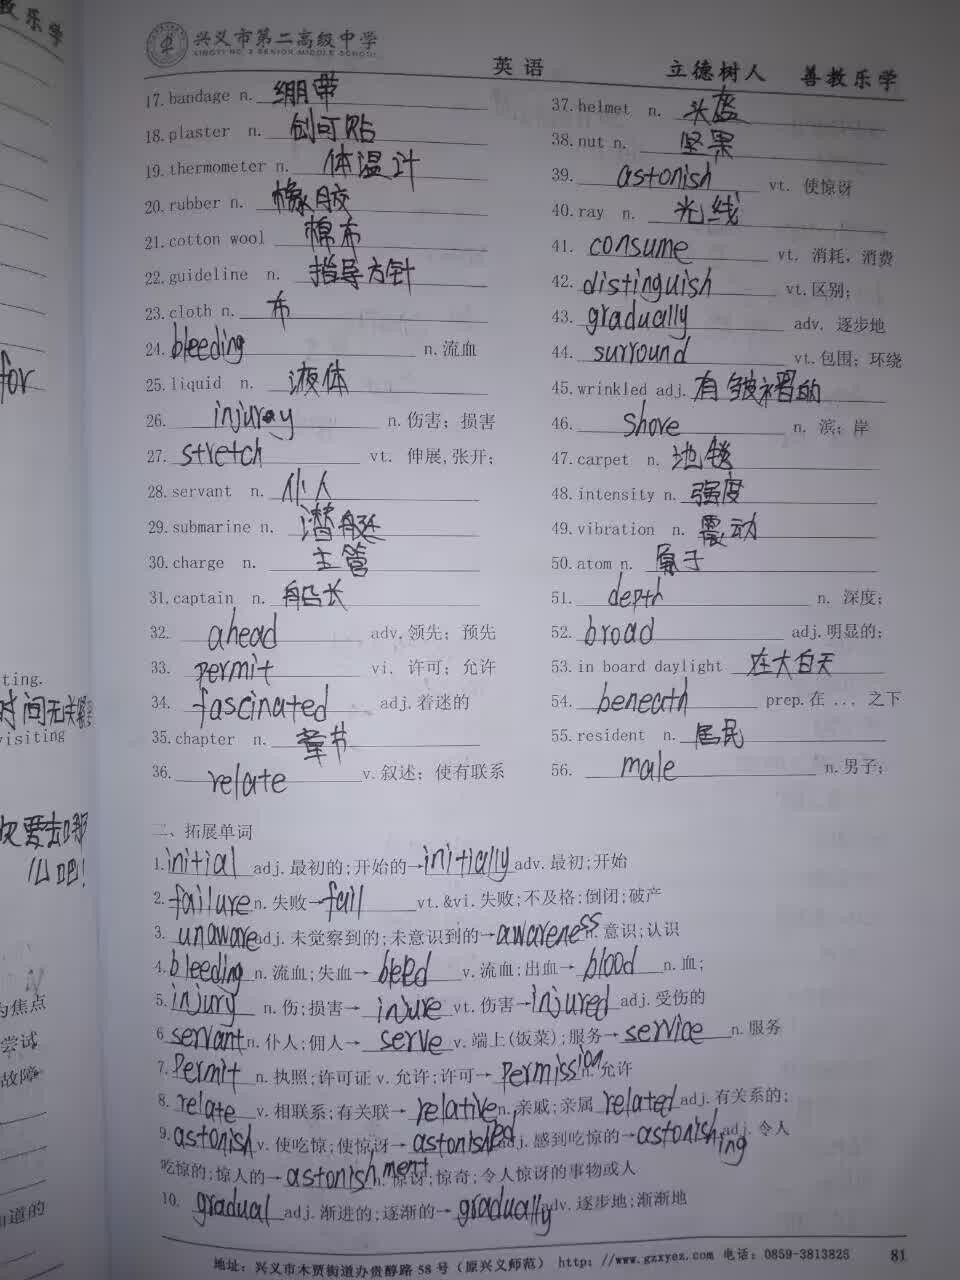 教乐学
兴义市第二高级中学
XINGYI NO.2 SENIOR MIDDLE SCHOOL
英语
立德树人 善教乐学
17. bandage n. 绷带
18. plaster n. 创可贴
19. thermometer n. 体温计
20. rubber n. 橡胶
21. cotton wool 棉布
22. guideline n. 指导方针
23. cloth n. 布
24. bleeding n. 流血
25. liquid n. 液体
26. injuray n. 伤害；损害
27. stretch vt. 伸展,张开；
28. servant n. 仆人
29. submarine n. 潜艇
30. charge n. 主管
31. captain n. 船长
32. ahead adv. 领先；预先
33. permit vi. 许可；允许
34. fascinated adj. 着迷的
35. chapter n. 章节
36. relate v. 叙述；使有联系
37. helmet n. 头盔
38. nut n. 坚果
39. astonish vt. 使惊讶
40. ray n. 光线
41. consume vt. 消耗，消费
42. distinguish vt. 区别；
43. gradually adv. 逐步地
44. surround vt. 包围；环绕
45. wrinkled adj. 有皱褶的
46. shore n. 滨；岸
47. carpet n. 地毯
48. intensity n. 强度
49. vibration n. 震动
50. atom n. 原子
51. depth n. 深度；
52. broad adj. 明显的；
53. in board daylight 在大白天
54. beneath prep. 在 ... 之下
55. resident n. 居民
56. male n. 男子；
二、拓展单词
1. initial adj. 最初的；开始的→initially adv. 最初；开始
2. failure n. 失败→fail vt.&vi. 失败；不及格；倒闭；破产
3. unaware adj. 未觉察到的；未意识到的→awareness n. 意识；认识
4. bleeding n. 流血；失血→ bleed v. 流血；出血→ blood n. 血；
5. injury n. 伤；损害→ injure vt. 伤害→injured adj. 受伤的
6 servant n. 仆人；佣人→ serve v. 端上(饭菜)；服务→ service n. 服务
7. Permit n. 执照；许可证 v. 允许；许可→ Permission n. 允许
8. relate v. 相联系；有关联→ relative n. 亲戚；亲属 related adj. 有关系的；
9. astonish v. 使吃惊；使惊讶→ astonished adj. 感到吃惊的→astonishing adj. 令人
吃惊的；惊人的→ astonishment n. 惊讶；惊奇；令人惊讶的事物或人
10. gradual adj. 渐进的；逐渐的→ gradually adv. 逐步地；渐渐地
地址：兴义市木贾街道办贵醇路58号（原兴义师范） http: //www.gzxyez.com 电话：0859-3813826 81
for
ting.
时间无关
visiting
么吧!
为焦点
尝试
故障
知道的